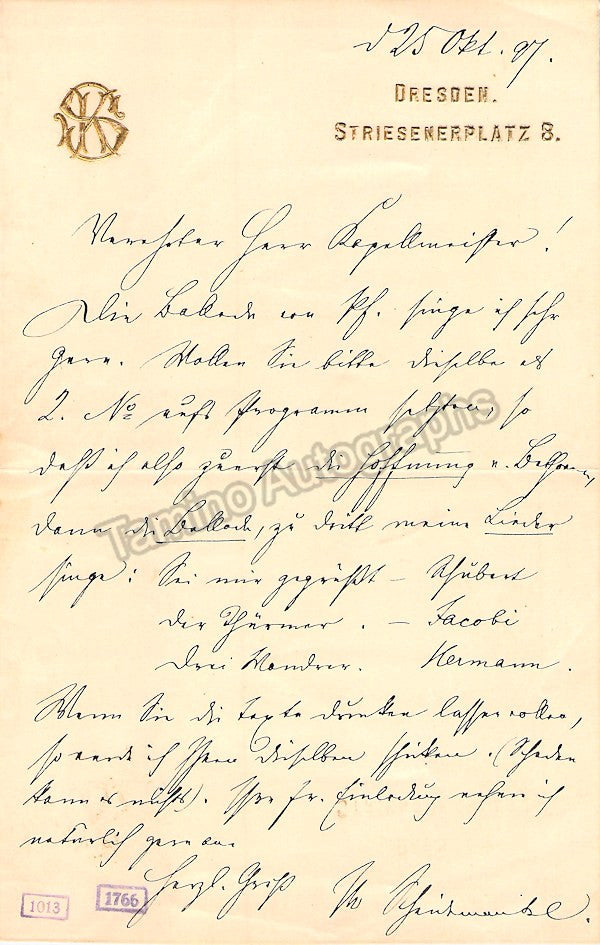 d 25 Okt. 97.
KS
DRESDEN.
STRIESENERPLATZ 8.
Verehrter Herr Kapellmeister!
Die Ballade von Pf. singe ich sehr
gern. Wollen Sie bitte dieselbe als
2. No aufs Programm setzten, so
daß ich also zuerst die Hoffnung v. Beethoven,
dann die Ballade, zu dritt meine Lieder
singe: Sei mir gegrüßt – Schubert
Der Thürmer. – Jacobi
Drei Wandrer. Hermann.
Wenn Sie die Texte drucken lassen wollen,
so werde ich Ihnen dieselben schicken. (Schaden
kann es nichts). Ihre fr. Einladung nehme ich
natürlich gern an.
Herzl. Gruß
Ihr Scheidemantel.
1013
1766
Tamino Autographs